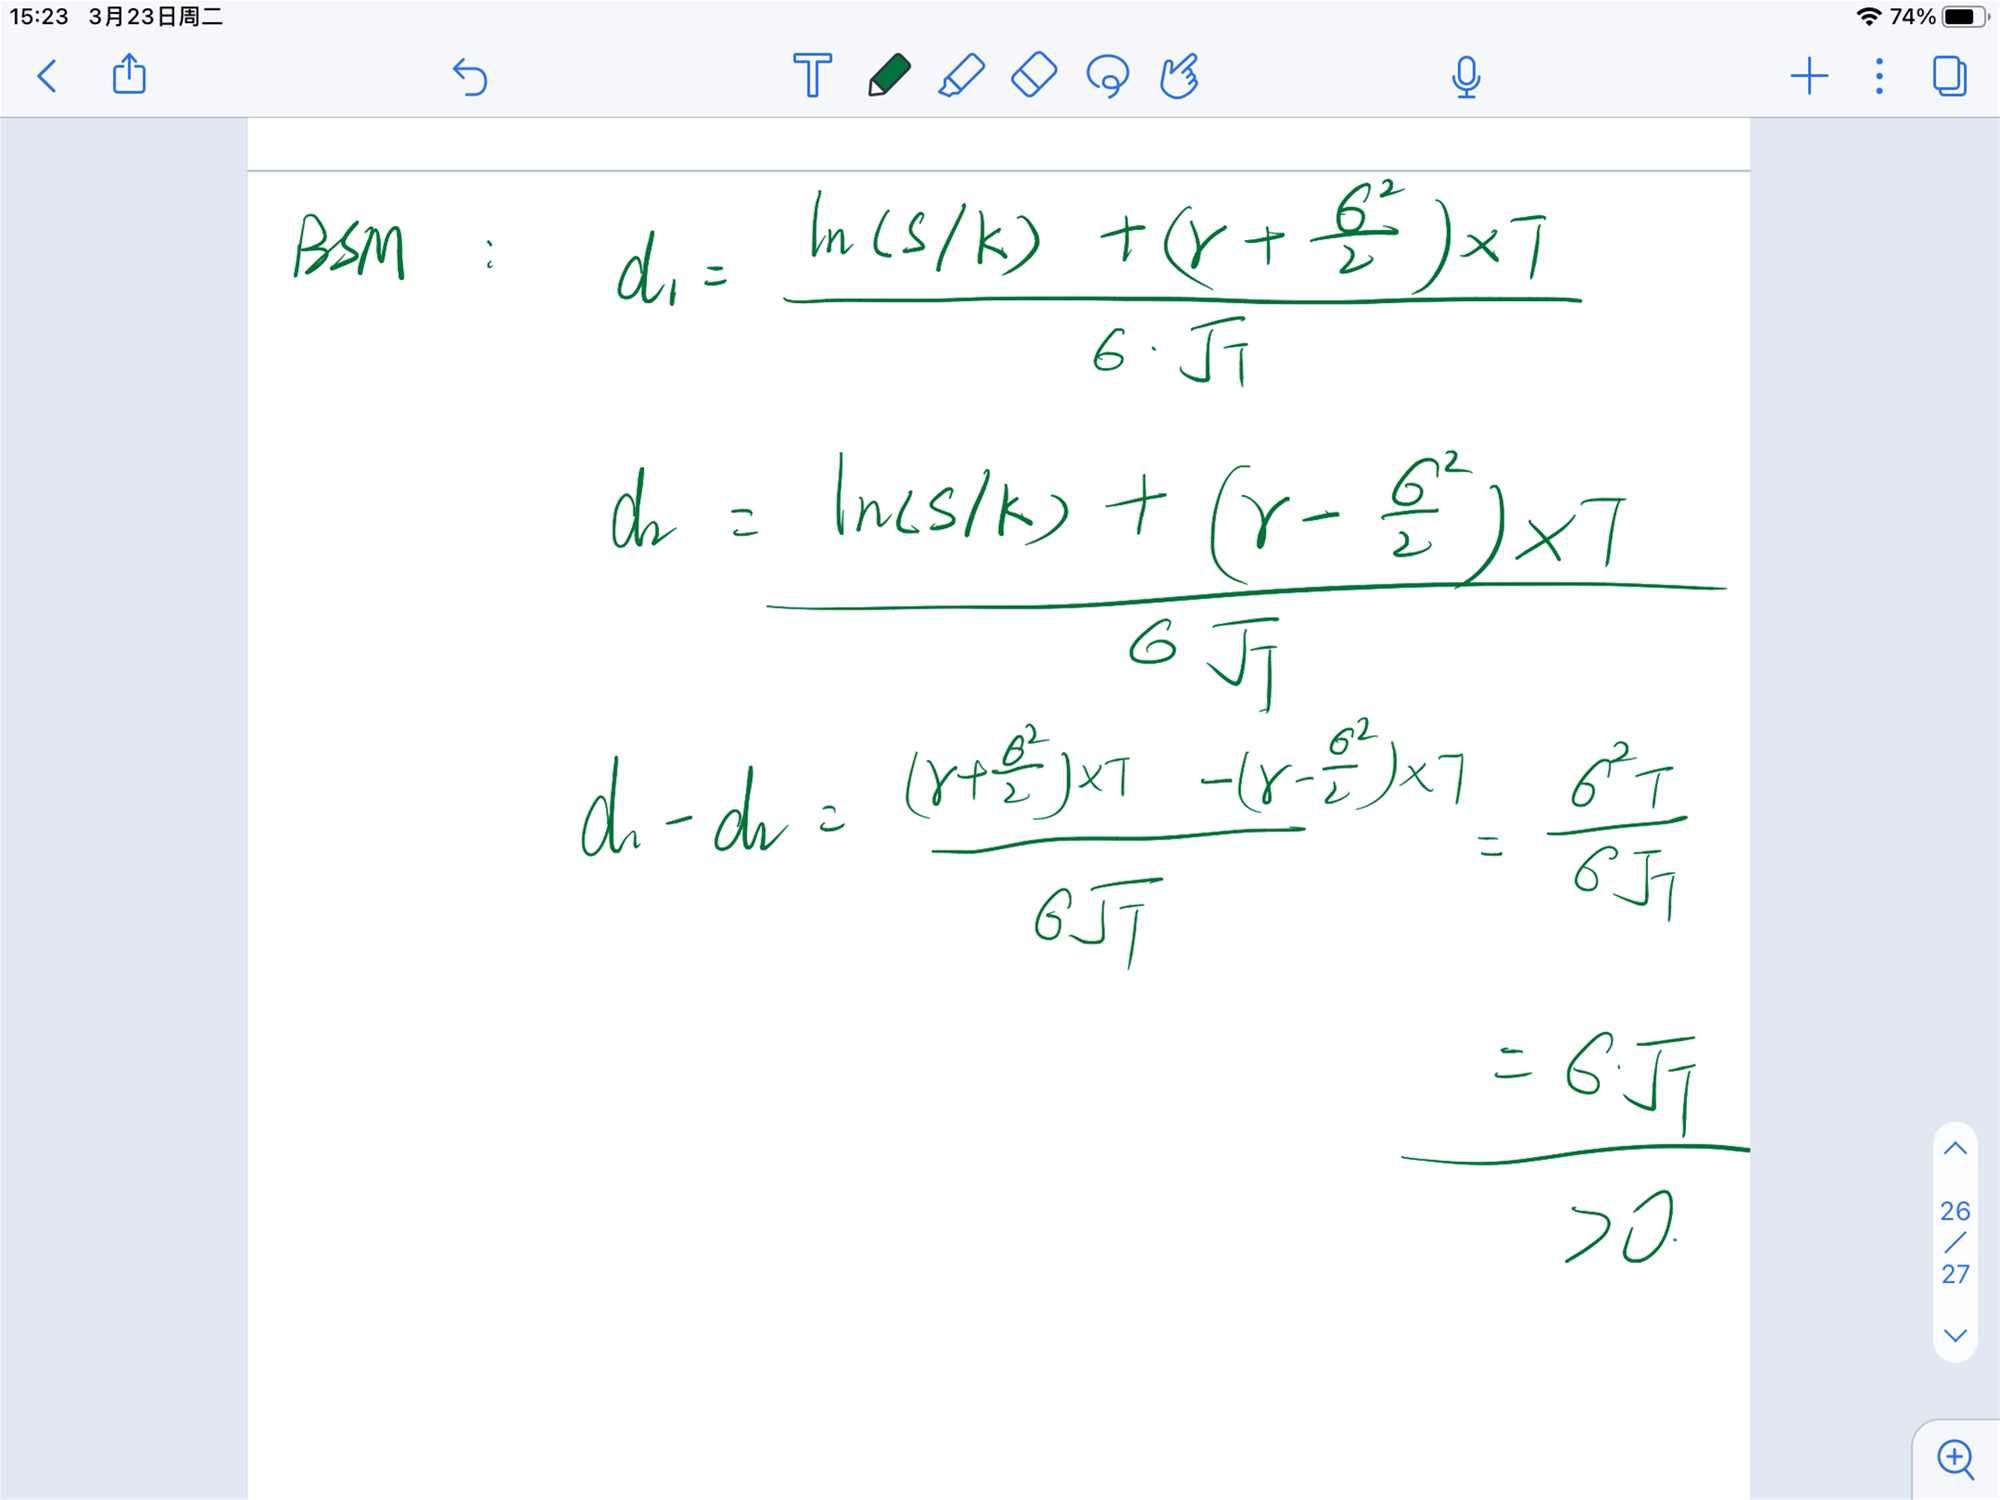 15:23 3月23日周二 74%
BSM : d₁ = (ln(S/K) + (r + σ²/2) × T) / (σ · √T)
d₂ = (ln(S/K) + (r - σ²/2) × T) / (σ√T)
d₁ - d₂ = ((r + σ²/2) × T - (r - σ²/2) × T) / (σ√T) = σ²T / (σ√T)
= σ · √T
>0.
26
/
27